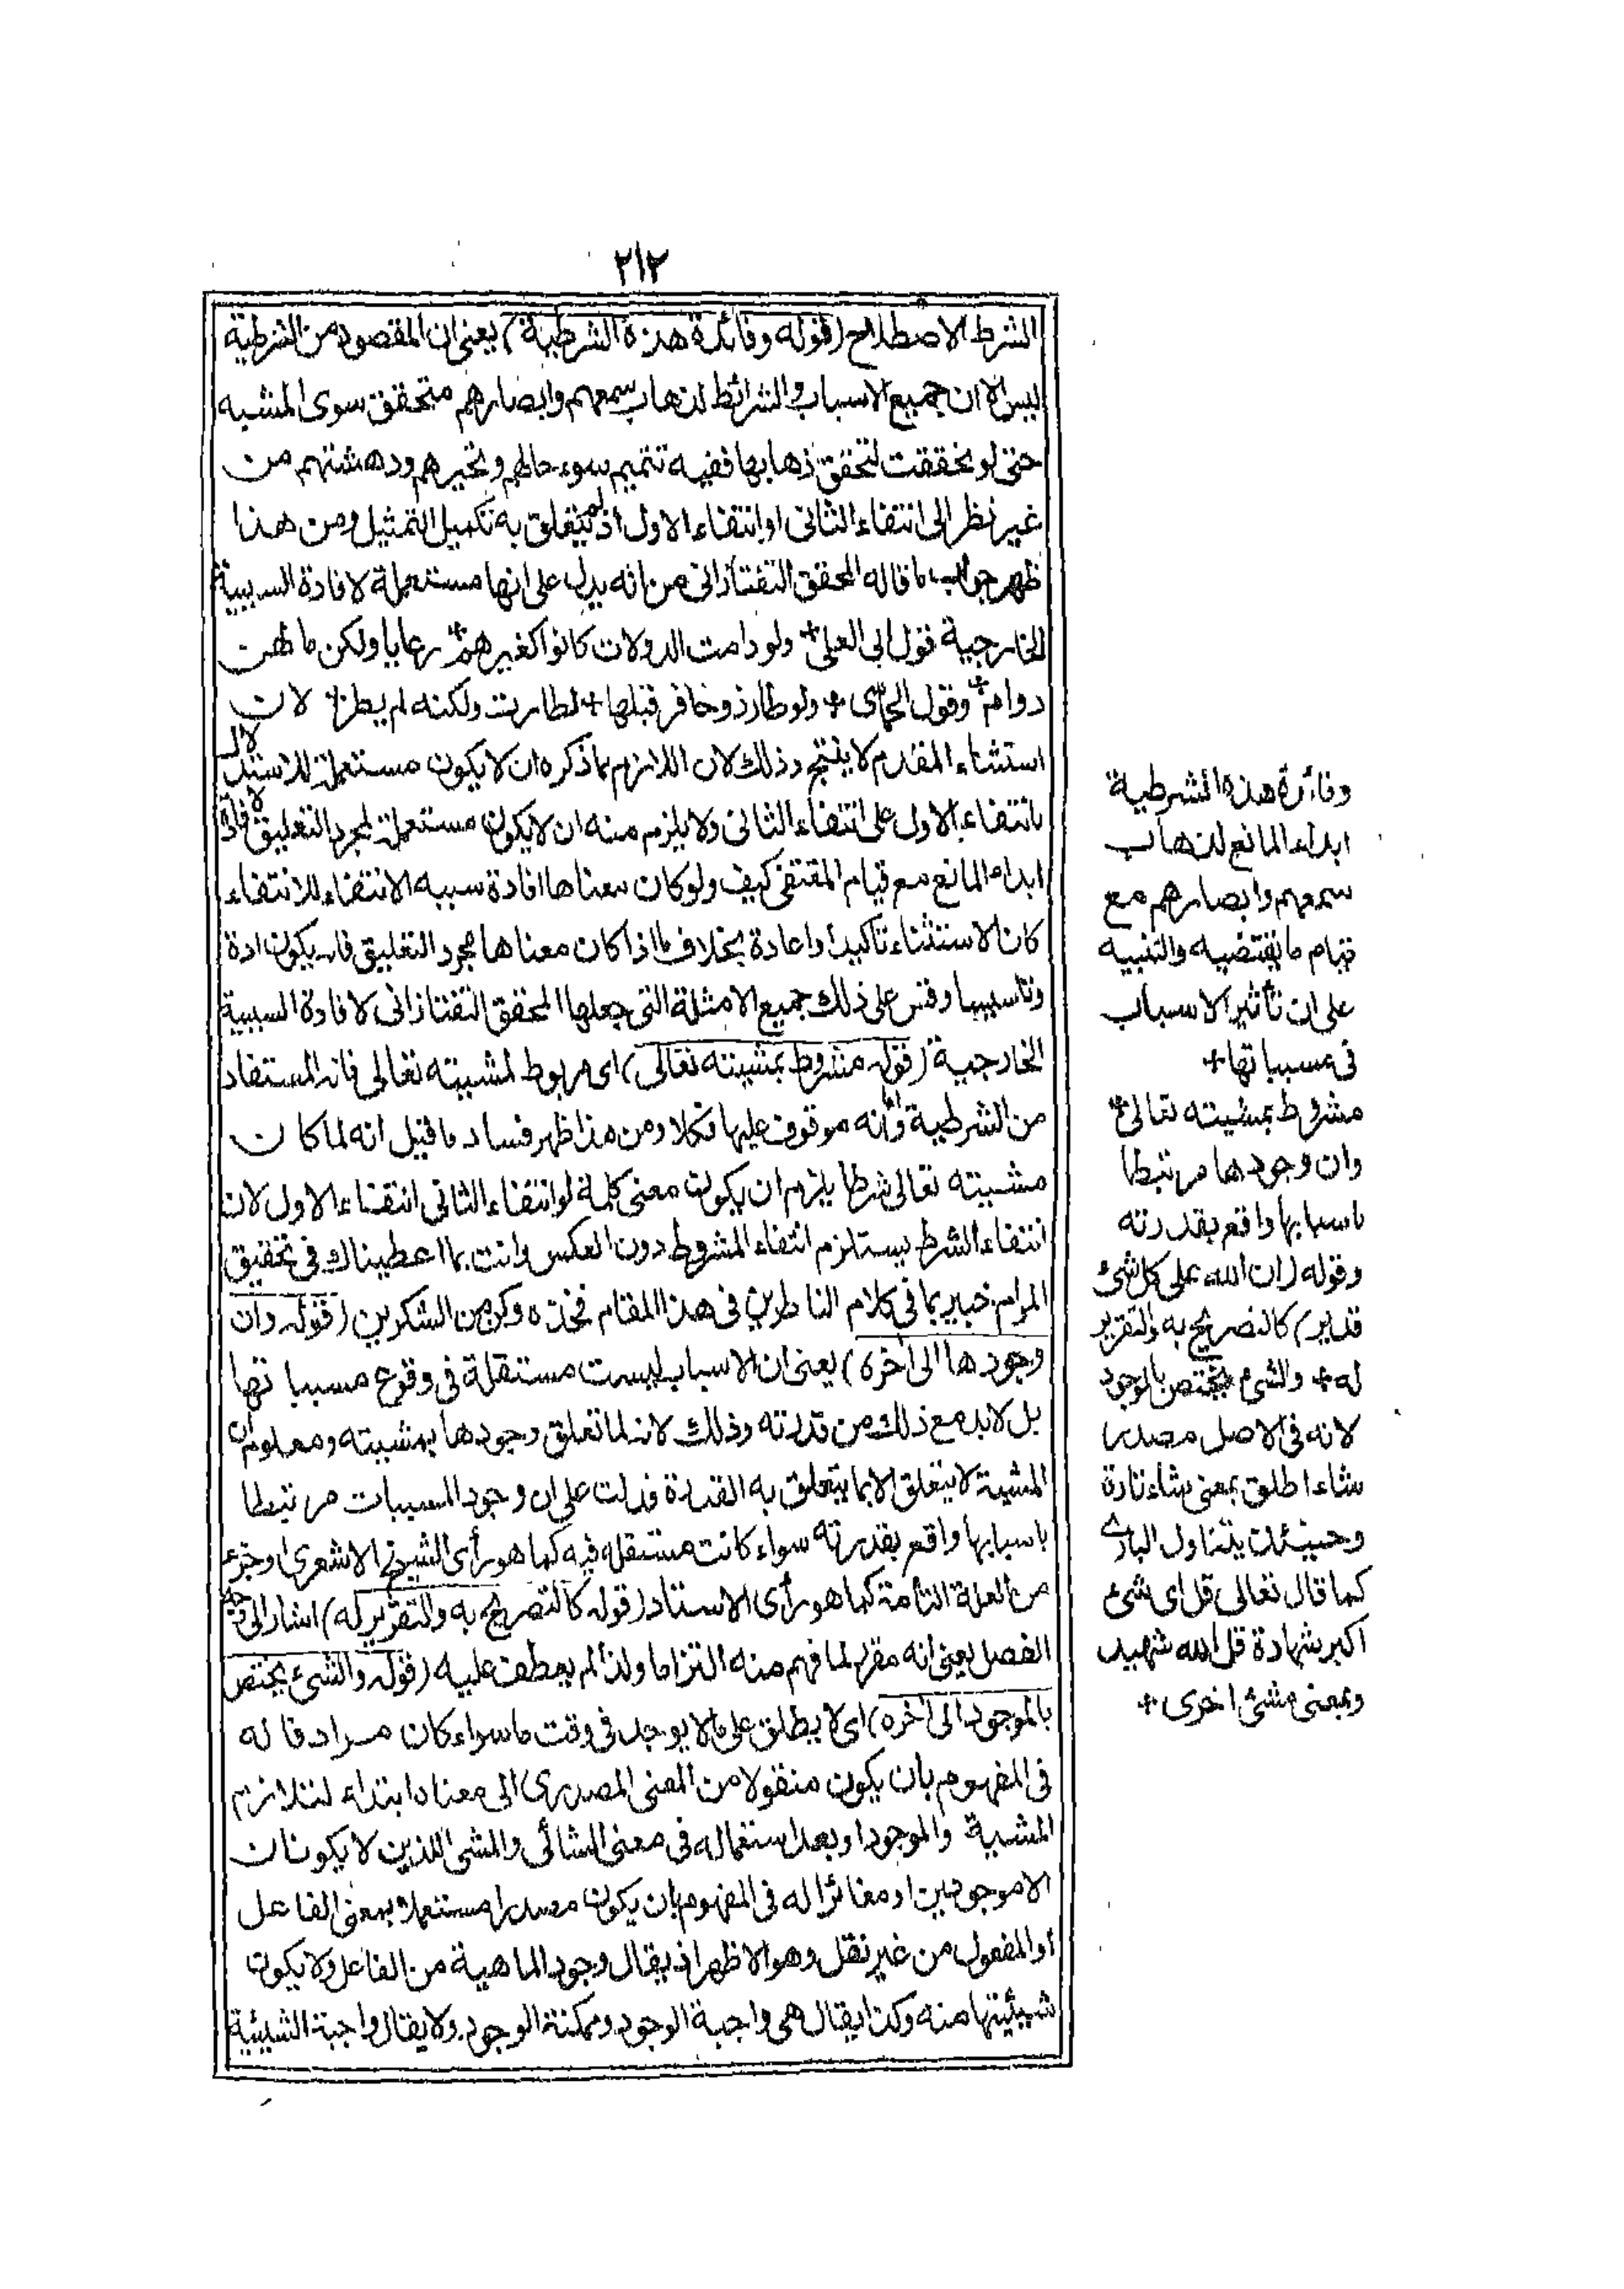 ٢١٢
الشرط الاصطلاح (قوله وفائدة هذه الشرطية) يعنى ان المقصود من الشرطية
ليس الا ان جميع الاسباب والشرائط لذهاب سمعهم وابصارهم متحقق سوى المشبه
حتى لو تحققت لتحقق ذهابها ففيه تتميم بسوء حالهم وتحيرهم ودهشتهم من
غير نظر الى انتفاء الثانى او انتفاء الاول اذ لم يتعلق به تكميل التمثيل ومن هذا
ظهر جواب ما قاله المحقق التفتازانى من انه يدل على انها مستعملة لافادة السببية
الخارجية قول ابى العلى + ولو دامت الدولات كانوا كغيرهم + رعايا ولكن ما لهن
دوام + وقول الحماسى + ولو طار ذو حافر قبلها + لطارت ولكنه لم يطر + لان
استثناء المقدم لا ينتج وذلك لان اللازم مما ذكره ان لا يكون مستعملة للاستدلال
بانتفاء الاول على انتفاء الثانى ولا يلزم منه ان لا يكون مستعملة لمجرد التعليق لافادة
ابداء المانع مع قيام المقتضى كيف ولو كان معناها افادة سببه الانتفاء للانتفاء
كان الاستثناء تاكيدا واعادة بخلاف ما اذا كان معناها مجرد التعليق فانه يكون افادة
وتاسيسا وقس على ذلك جميع الامثلة التى جعلها المحقق التفتازانى لافادة السببية
الخارجية (قوله مشروط بمشيته تعالى) اى مربوط لمشيته تعالى فانه المستفاد
من الشرطية واما انه موقوف عليها فكلا ومن هذا ظهر فساد ما قيل انه لما كان
مشيته تعالى شرطا يلزم ان يكون معنى كلمة لو انتفاء الثانى انتفاء الاول لان
انتفاء الشرط يستلزم انتفاء المشروط دون العكس وانت بما اعطيناك فى تحقيق
المرام خبير بما فى كلام الناظرين فى هذا المقام فخذه وكن من الشكرين (قوله وان
وجودها الى آخره) يعنى ان الاسباب ليست مستقلة فى وقوع مسبباتها
بل لابد مع ذلك من قدرته وذلك لانه لما تعلق وجودها بمشيته ومعلوم ان
المشية لا يتعلق الا بما يتعلق به القدرة فدلت على ان وجود المسببات مرتبطا
باسبابها واقع بقدرته سواء كانت مستقلة فيه كما هو رأى الشيخ الاشعرى او جزء
من العلة التامة كما هو رأى الاستاد (قوله كالتصريح به والتقرير له) اشار الى وجه
الفصل يعنى انه مقرر لما فهم منه التزاما ولذا لم يعطف عليه (قوله والشئ يختص
بالموجود الى آخره) اى لا يطلق على ما لا يوجد فى وقت ما سواء كان مرادفا له
فى المفهوم بان يكون منقولا من المعنى المصدرى الى معناه ابتداء لتلازم
المشية والموجود او بعد استعماله فى معنى الشائى والمشى اللذين لا يكونان
الا موجودين او مغائرا له فى المفهوم بان يكون مصدرا مستعملا بمعنى الفاعل
او المفعول من غير نقل وهو الاظهر اذ يقال وجود الماهية من الفاعل ولا يكون
شيئيتها منه وكذا يقال هى واجبة الوجود وممكنة الوجود ولا يقال واجبة الشيئية
وفائدة هذه الشرطية
ابداء المانع لذهاب
سمعهم وابصارهم مع
قيام ما يقتضيه والتنبيه
على ان تأثير الاسباب
فى مسبباتها +
مشروط بمشيته تعالى +
وان وجودها مرتبطا
باسبابها واقع بقدرته
وقوله (ان الله على كل شئ
قدير) كالتصريح به والتقرير
له + والشئ يختص بالموجود
لانه فى الاصل مصدر
شاء اطلق بمعنى شاء تارة
وحينئذ يتناول البارى
كما قال تعالى قل اى شئ
اكبر شهادة قل الله شهيد
وبمعنى مشئ اخرى +